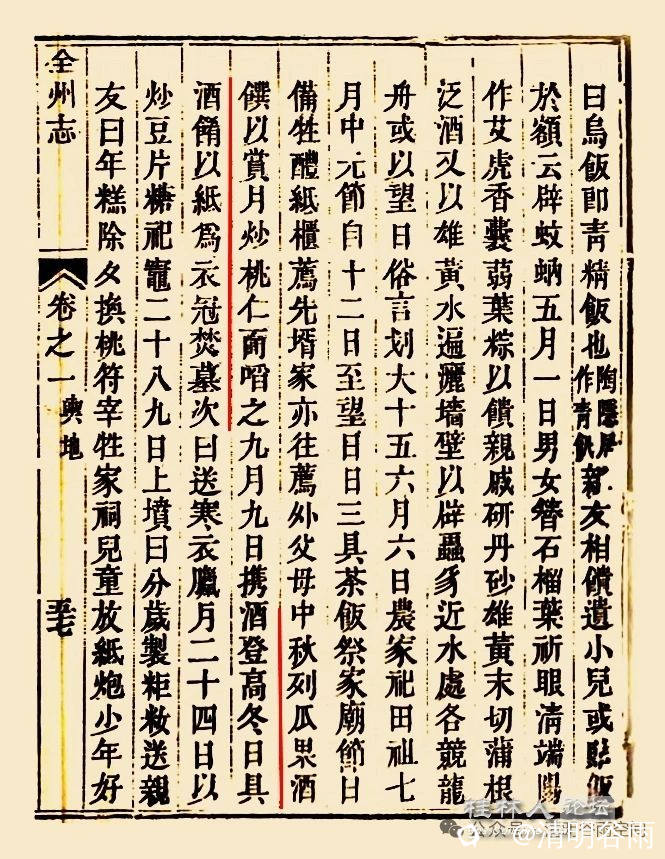 曰烏飯即青精飯也陶隱居作青友相饋遺小兒或飯
於額云辟蚊蚋五月一日男女簪石榴葉祈眼清端陽
作艾虎香囊蒻葉粽以饋親戚研丹砂雄黃末切蒲根
泛酒又以雄黃水遍灑墻壁以辟蟲豸近水處各競龍
舟或以望日俗言划大十五六月六日農家祀田祖七
月中元節自十二日至望日日三具茶飯祭家廟節日
備牲醴紙櫃薦先壻家亦往薦外父母中秋列瓜果酒
饌以賞月炒桃仁面啗之九月九日携酒登高冬日具
酒餚以紙爲衣冠焚墓次曰送寒衣臘月二十四日以
炒豆片糖祀竈二十八九日上墳曰分歲製粔籹送親
友曰年糕除夕換桃符宰牲家祠兒童放紙炮少年好
全州志 卷之一 輿地 五七
桂林人论坛
公众号
@清明谷雨